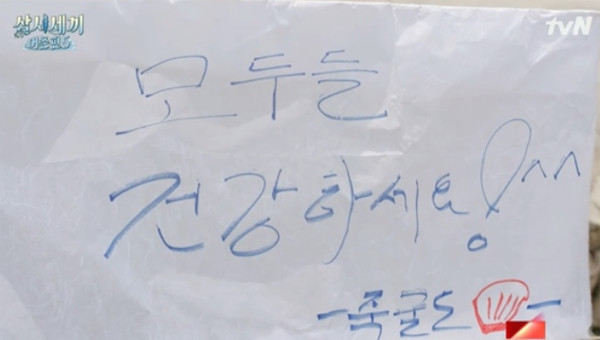 삼시세끼
어촌편5
tvN
모두들
건강하세요! ^^
-죽굴도-